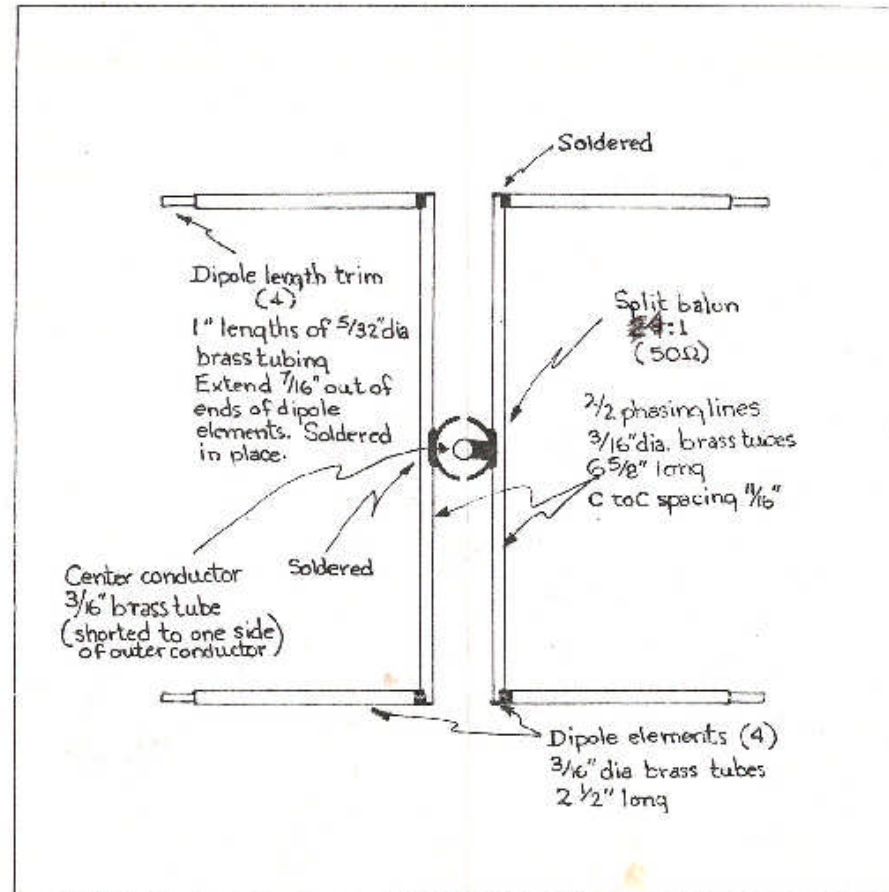 Soldered
Dipole length trim
(4)
1" lengths of 5/32" dia
brass tubing
Extend 7/16" out of
ends of dipole
elements. Soldered
in place.
Split balun
4:1
(50Ω)
λ/2 phasing lines
3/16" dia. brass tubes
6 5/8" long
C to C spacing 11/16"
Center conductor
3/16" brass tube
(shorted to one side
of outer conductor)
Soldered
Dipole elements (4)
3/16" dia brass tubes
2 1/2" long